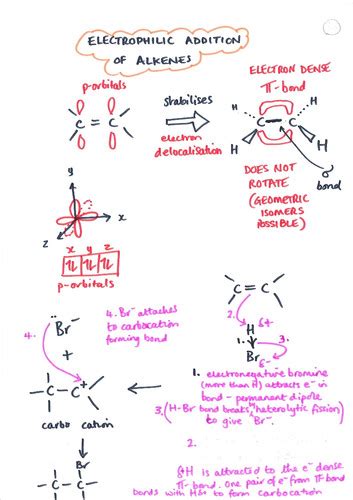 ELECTROPHILIC ADDITION
OF ALKENES
p-orbitals
C = C
stabilises
electron
delocalisation
ELECTRON DENSE
π-bond
H
H
C — C
H
H
σ
bond
DOES NOT
ROTATE
(GEOMETRIC
ISOMERS
POSSIBLE)
y
x
z
x y z
p-orbitals
C = C
2.
H δ+
1.
3.
Br δ-
4.
Br⁻
4. Br⁻ attaches
to carbocation
forming bond
+
C — C⁺
carbo cation
Br
C — C
1. electronegative bromine
(more than H) attracts e⁻ in
bond - permanent dipole
3. (H-Br bond breaks, heterolytic fission)
to give Br⁻.
2.
δ+H is attracted to the e⁻ dense
π-bond. One pair of e⁻ from π bond
bonds with Hδ+ to form carbocation